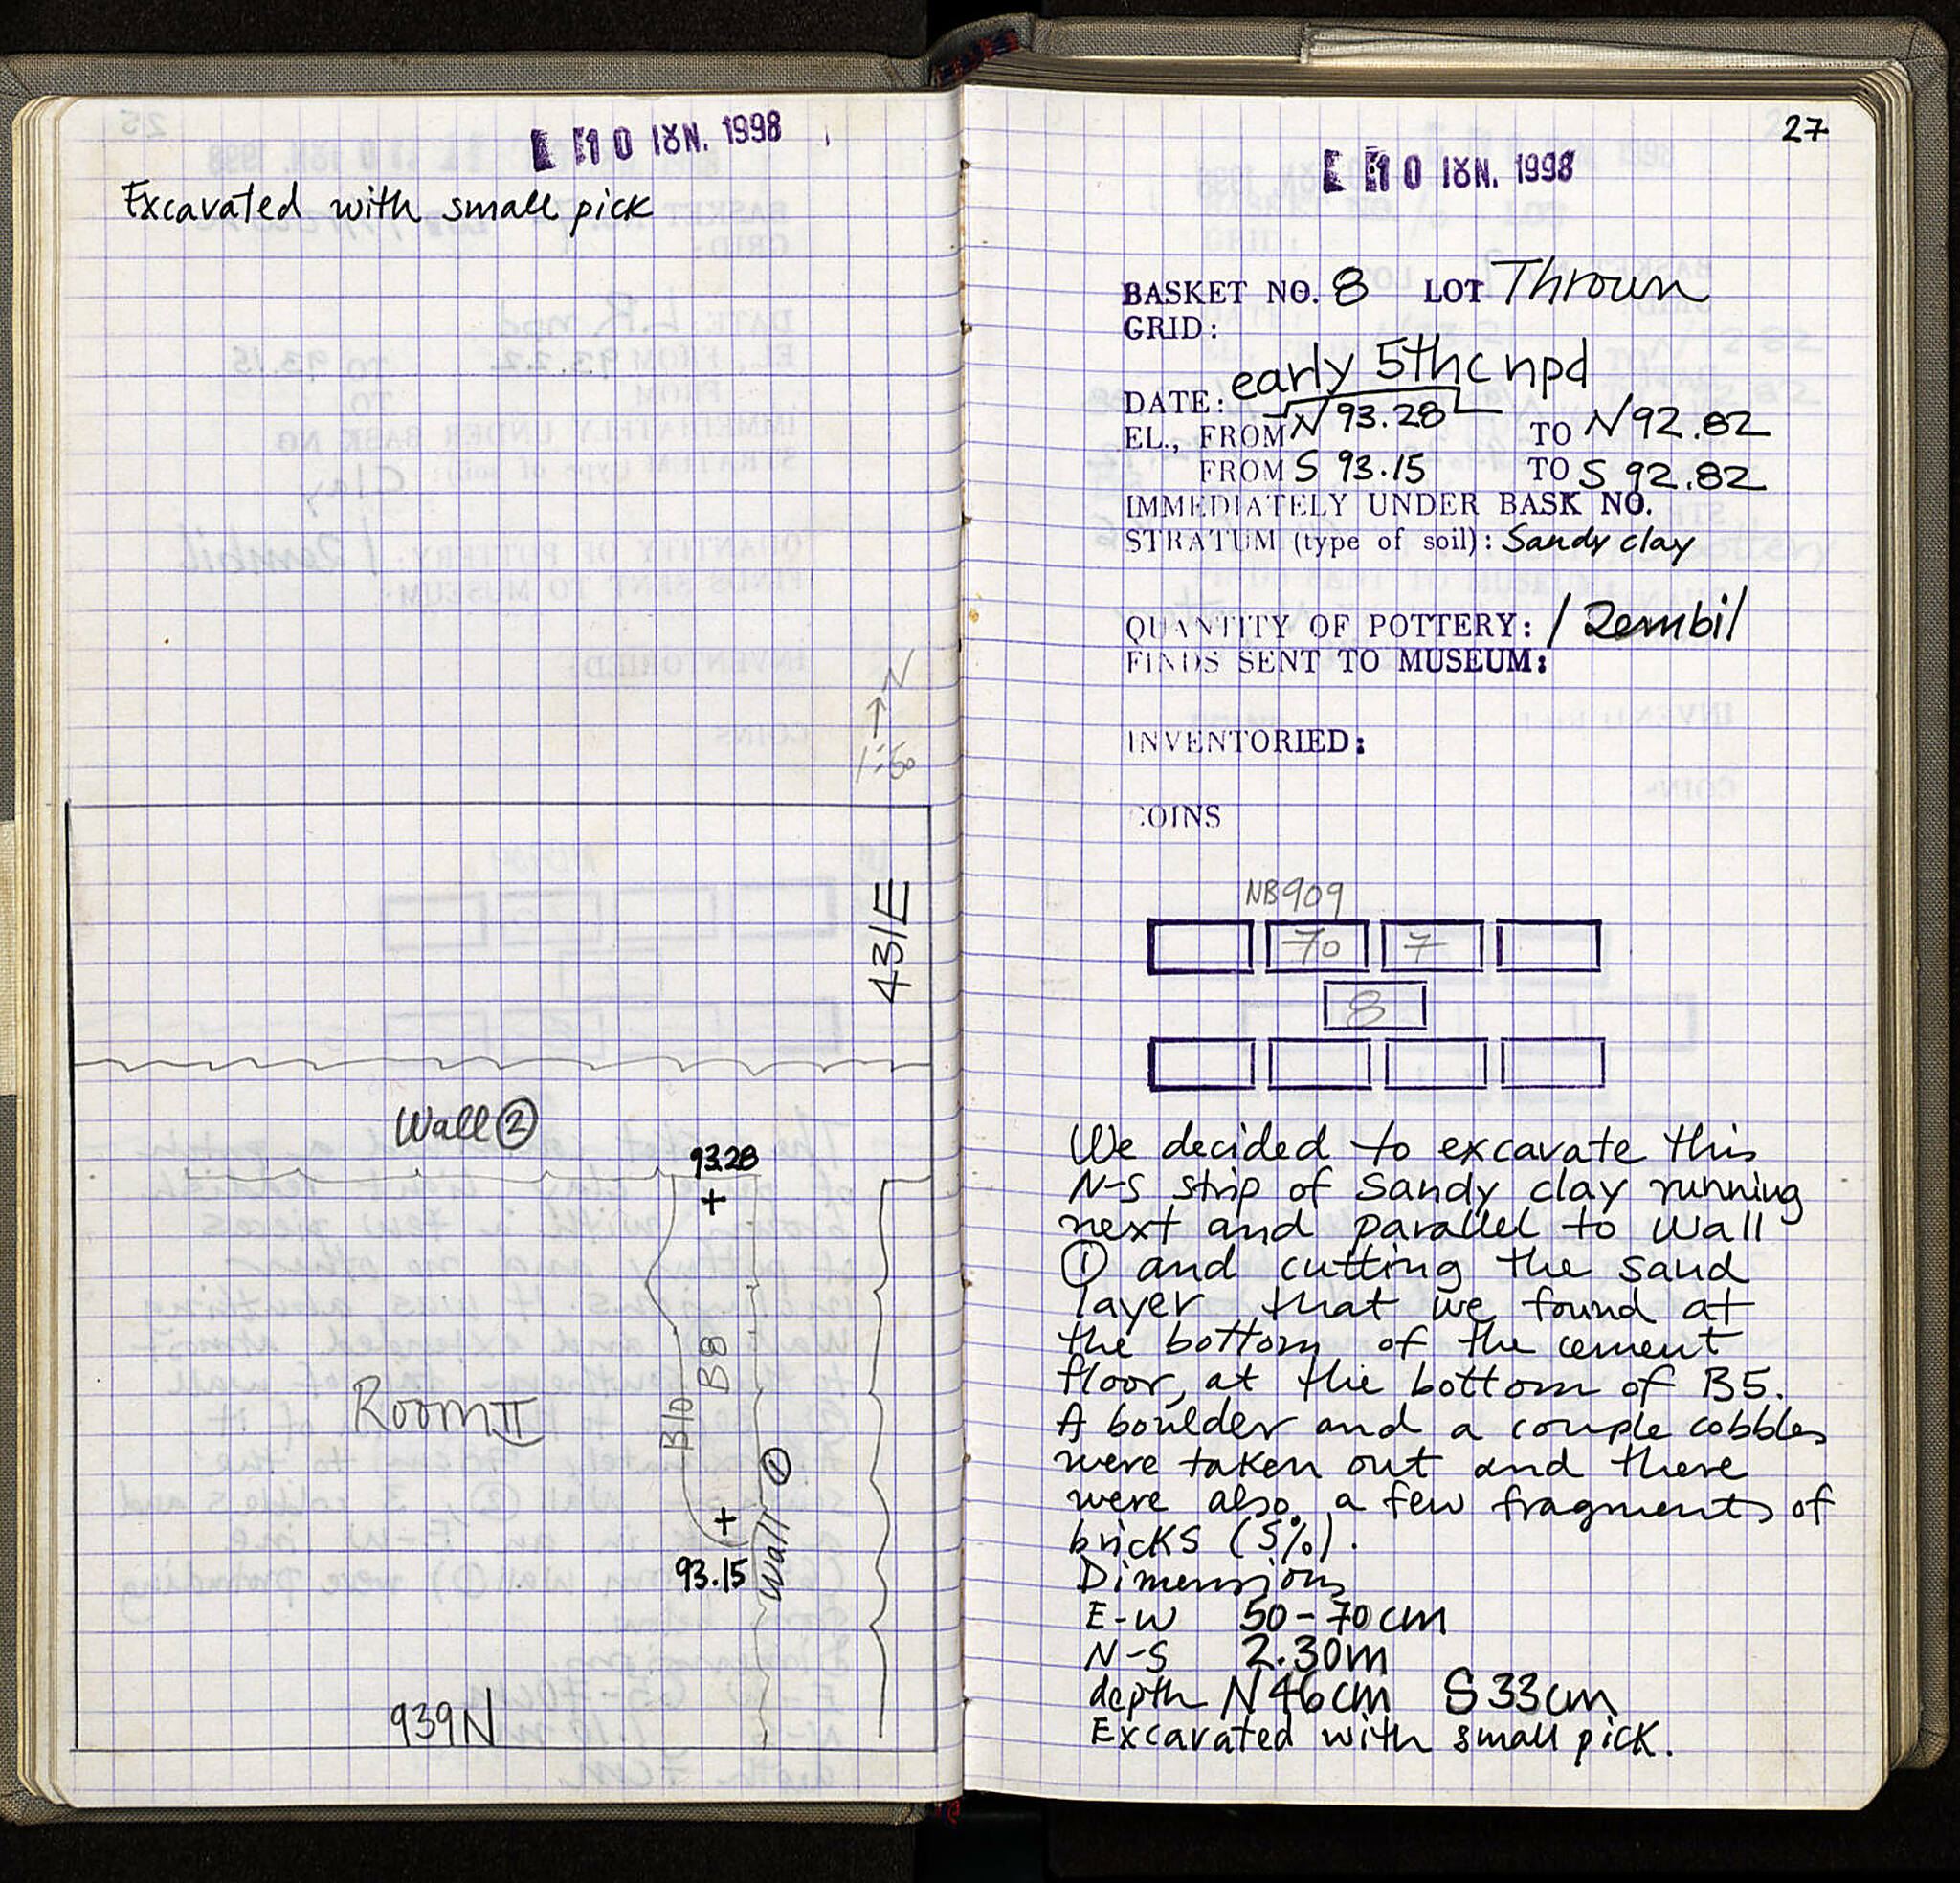 10 ΙΟΥΝ. 1998
Excavated with small pick
N
1:50
431E
Wall ②
93.28
B8
Room II
B10
Wall ①
93.15
939N
27
10 ΙΟΥΝ. 1998
BASKET NO. 8 LOT Thrown
GRID:
early 5thc npd
DATE:
EL., FROM N 93.28 TO N 92.82
FROM S 93.15 TO S 92.82
IMMEDIATELY UNDER BASK NO.
STRATUM (type of soil): Sandy clay
QUANTITY OF POTTERY: 1 Zembil
FINDS SENT TO MUSEUM:
INVENTORIED:
COINS
NB909
70 7
8
We decided to excavate this
N-S strip of sandy clay running
next and parallel to wall
① and cutting the sand
layer that we found at
the bottom of the cement
floor, at the bottom of B5.
A boulder and a couple cobbles
were taken out and there
were also a few fragments of
bricks (5%).
Dimensions
E-W 50-70cm
N-S 2.30m
depth N 46cm S 33cm
Excavated with small pick.